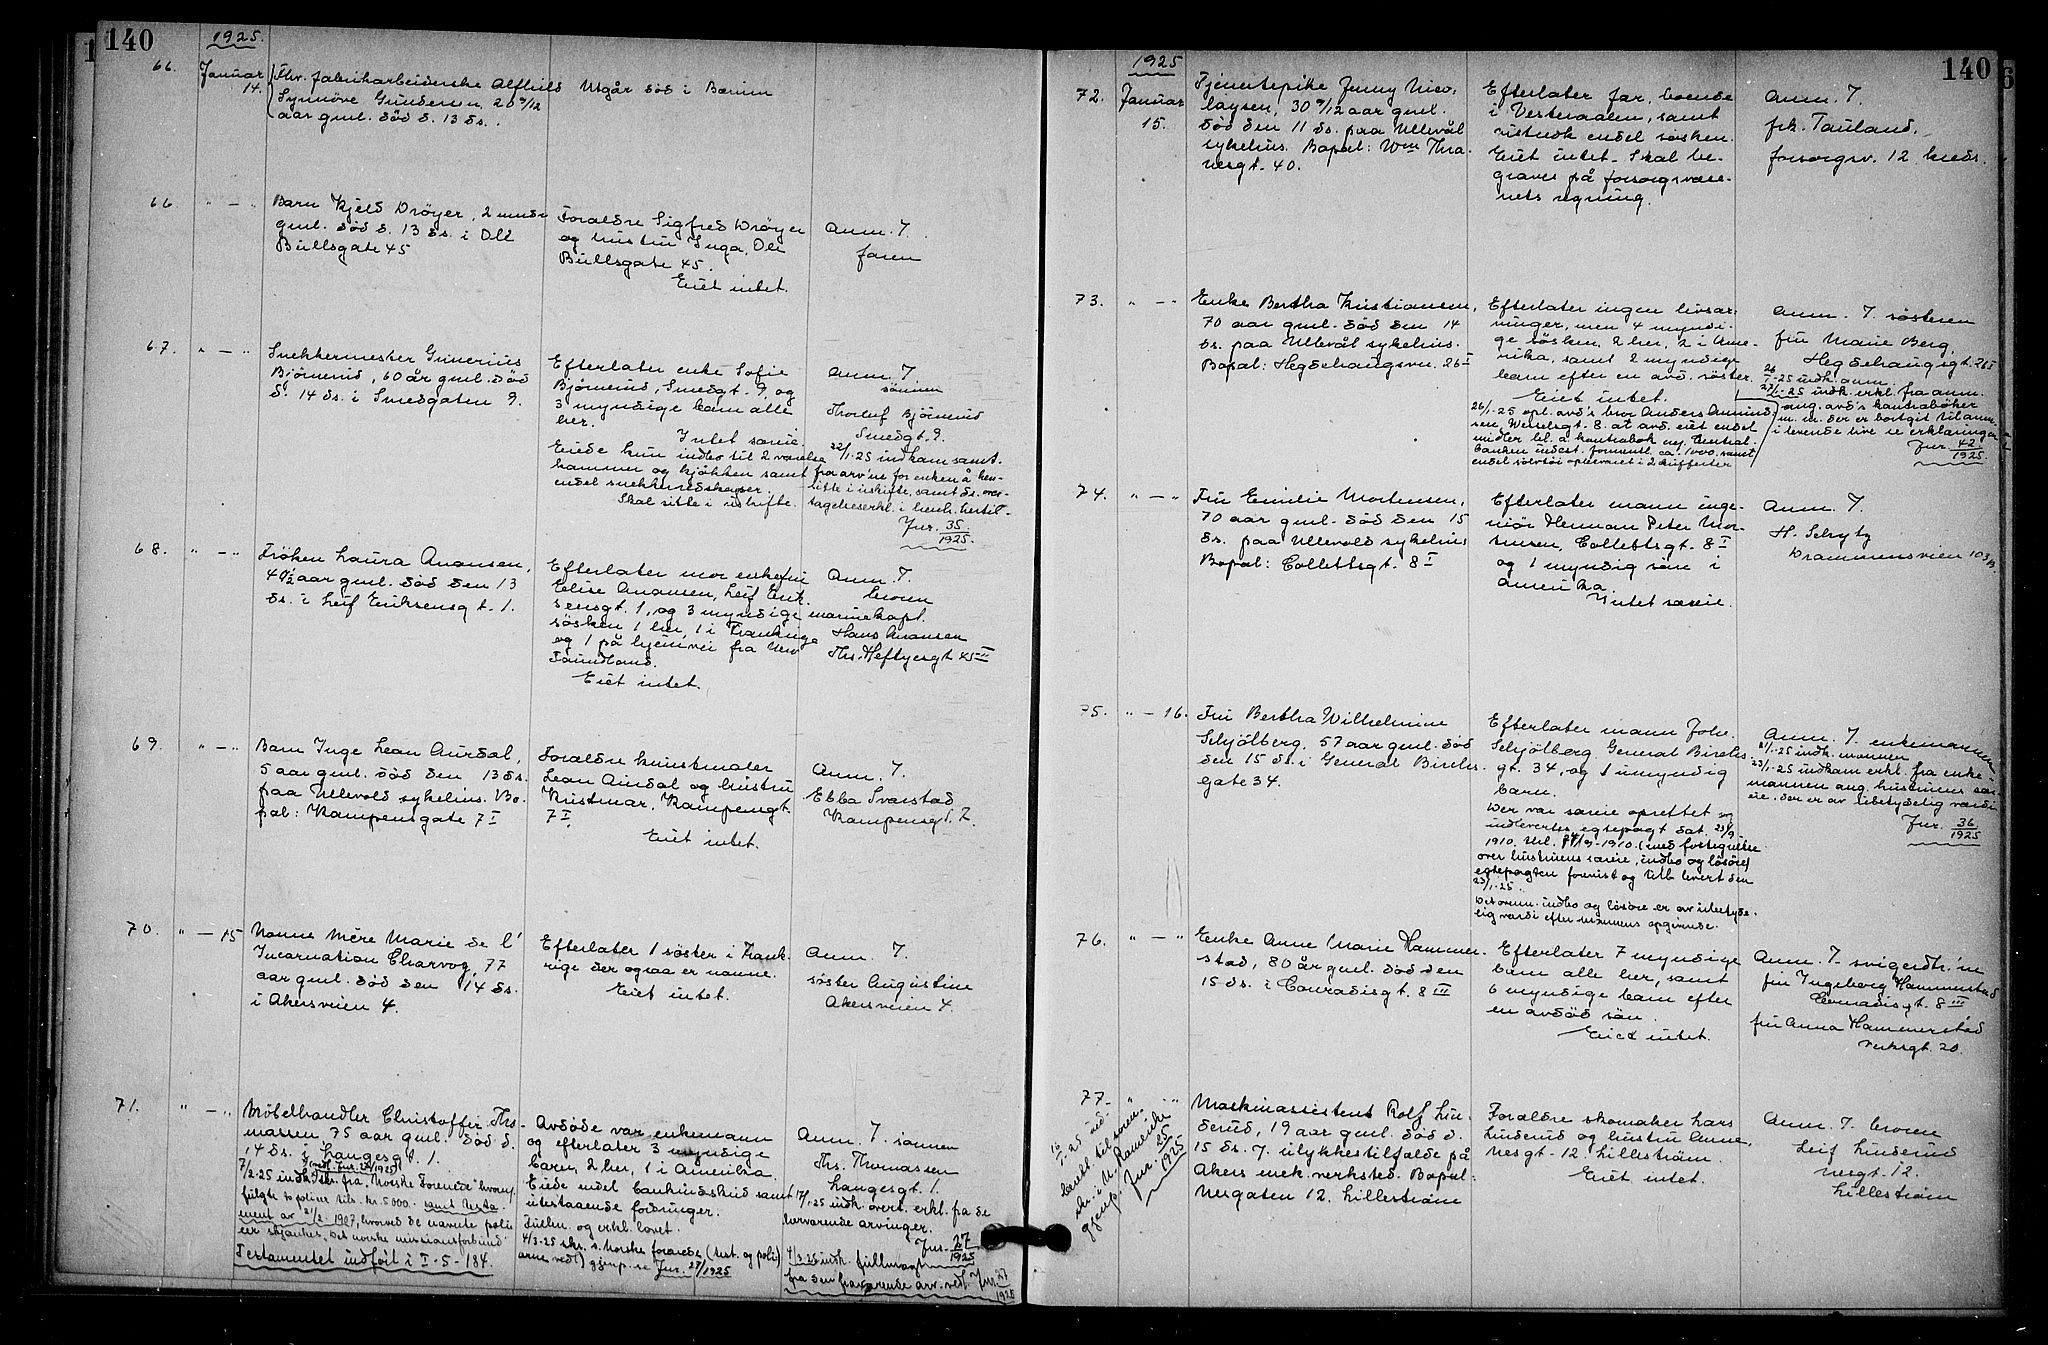 140
1925.
66.
Januar
14.
Fhv. fabrikarbeiderske Alfhild
Synnöve Gundersen, 20 9/12
aar gml. död d. 13 ds.
Utgår död i Bærum
66
" — "
Barn Kjeld Dröyer, 2 mndr
gml. död d. 13 ds. i Ole
Bullsgate 45
Forældre Sigfred Dröyer
og hustru Inga, Ole
Bullsgate 45.
Eiet intet.
Anm. 7.
faren
67.
" — "
Snekkermester Grinerius
Björnerud, 60 år gml. död
d. 14 ds. i Smedgaten 9.
Efterlater enke Sofie
Björnerud, Smedgt. 9, og
3 myndige barn alle
her.
Intet særeie.
Eiede kun indbo til 2 værelser
kammer og kjökken samt
endel snekkerredskaper.
Skal sitte i uskifte.
Anm. 7
sönnen
Thorleif Björnerud
Smedgt. 9.
22/1-25 indkom samt.
fra arv'ne for enken å hen-
sitte i uskifte, samt ds. over-
tagelseserkl. i henh. hertil-
Jnr. 35/1925.
68.
" — "
Fröken Laura Anansen,
49½ aar gml. död den 13
ds. i Leif Eriksensgt. 1.
Efterlater mor enkefru
Elise Anansen, Leif Erik-
sensgt. 1, og 3 myndige
sösken 1 her, 1 i Frankrige
og 1 på hjemvei fra New
Foundland.
Eiet intet.
Anm. 7.
broren
marinekapt.
Hans Anansen
Ths. Heftyesgt 45 II
69.
" — "
Barn Inge Lean Aurdal,
5 aar gml. död den 13 ds.
paa Ullevold sykehus. Bo-
pæl: Kampensgate 7 I
Forældre kunstmaler
Lean Aurdal og hustru
Kristmar, Kampengt.
7 I.
Eiet intet.
Anm. 7.
Ebba Svarstad
Kampensgt. 7.
70.
" — 15
Nonne Mère Marie de l'
Incarnation Charvoz, 77
aar gml. död den 14 ds.
i Akersveien 4.
Efterlater 1 söster i Frank-
rige der ogsaa er nonne.
Eiet intet.
Anm. 7.
söster Augustine
Akersveien 4.
71.
" — "
Möbelhandler Christoffer Tho-
massen 75 aar gml. död d.
14 ds. i Langesgt. 1.
(vedl. Jnr. 27/1925)
7/2-25 indk. skr. fra "Norske Forenede" hvorm.
fulgte 10 poliser tils. kr. 5000. samt testa-
ment av 21/2 1907, hvorved de nævnte poli-
ser skjænkes Det norske missionsforbund
Testamentet indfört i I-5-184.
Avdöde var enkemann
og efterlater 3 myndige
barn, 2 her, 1 i Amerika.
Eiede endel bankindskud samt
utestaaende fordringer.
Fullm. og erkl. lovet.
4/3-25 skr. s. Norske forenede (test. og poli)
gjenp. se Jnr. 27/1925
Anm. 7. sönnen
Ths. Thomassen
Langesgt. 1.
17/1-25 indk. overt. erkl. fra de
hervarende arvinger.
Jnr. 27/1925
4/3-25 indk. fullmagt
fra den fraværende arv. vedl. Jnr. 27/1925
140
1925
72.
Januar
15.
Tjenestepike Jenny Nico-
laysen, 30 9/12 aar gml.
död den 11 ds. paa Ullevål
sykehus. Bopæl: Wm Thra-
nesgt. 40.
Efterlater far, boende
i Vesteraalen, samt
vistnok endel søsken.
Eiet intet. Skal be-
graves på forsorgsvæse-
nets regning.
Anm. 7.
frk. Tauland,
forsorgsv. 12 kreds.
73.
" — "
Enke Bertha Kristiansen,
70 aar gml. död den 14
ds. paa Ullevål sykehus.
Bopæl: Hegdehaugsvn. 26 I
Efterlater ingen livsar-
vinger, men 4 myndi-
ge søsken, 2 her, 2 i Ame-
rika, samt 2 myndige
barn efter en avd. søster.
Eiet intet.
26/1-25 opl. avd's bror Anders Amund-
sen, Wesselsgt. 8. at avd. eiet endel
midler bl. a. kontrabok
banken indest. formentl. ca. 1000, samt
endel sölvtöi opbevaret i 2 kufferter
Anm. 7. søsteren
fru Marie Berg,
Hegdehaugsgt. 26 I
26/1-25 indk. anm.
27/1-25 indk. erkl. fra anm.
ang. avd's kontrabøker
m. m. der er bortgit til anm.
i levende live se erklæringen
Jnr. 42/1925.
74.
" — "
Fru Emilie Mortensen,
70 aar gml. död den 15
ds. paa Ullevold sykehus
Bopæl: Collettsgt. 8 I
Efterlater mann inge-
niør Herman Peter Mor-
tensen, Collettsgt. 8 I
og 1 myndig sön i
Amerika.
Intet særeie.
Anm. 7.
H. Schytz
Drammensveien 103 B.
75.
" — 16.
Fru Bertha Wilhelmine
Schjölberg, 57 aar gml. död
den 15 ds. i General Birchs
gate 34.
Efterlater mann Joh.
Schjölberg General Birchs
gt. 34, og 1 umyndig
barn.
Der var særeie oprettet og
indlevertes egtepagt dat. 23/9
1910, tkl. 24/9-1910. (med fortegnelse
over hustruens særeie, indbo og lösöre)
egtepagten forevist og tilb. levert den
23/1-25.
Det ovenn. indbo og lösöre er av ubetyde-
lig værdi efter mannens opgivende.
Anm. 7. enkemannen
21/1-25 indk. mannen
23/1-25 indkom erkl. fra enke-
mannen ang. hustruens sær-
eie, der er av ubetydelig værdi
Jnr. 36/1925
76.
" — "
Enke Anne Marie Hammer-
stad, 80 år gml. död den
15 ds. i Conradisgt. 8 III
Efterlater 7 myndige
barn alle her, samt
6 myndige barn efter
en avdöd sön.
Eiet intet.
Anm. 7. svigerdtr.'ne
fru Ingeborg Hammerstad
Conradisgt. 8 III
fru Anna Hammerstad
Verksgt. 20.
77.
" — "
16/1-25 ud-
gjenp. Jnr. 25/1925
Maskinassistent Rolf Lin-
derud, 19 aar gml. död d.
15 ds. v. ulykkestilfælde på
Akers mek. verksted. Bopæl:
Nesgaten 12. Lilleström
Forældre skomaker Lars
Linderud og hustru Anne,
Nesgt. 12. Lilleström.
Eiet intet.
Anm. 7. broren
Leif Linderud
Nesgt. 12.
Lilleström